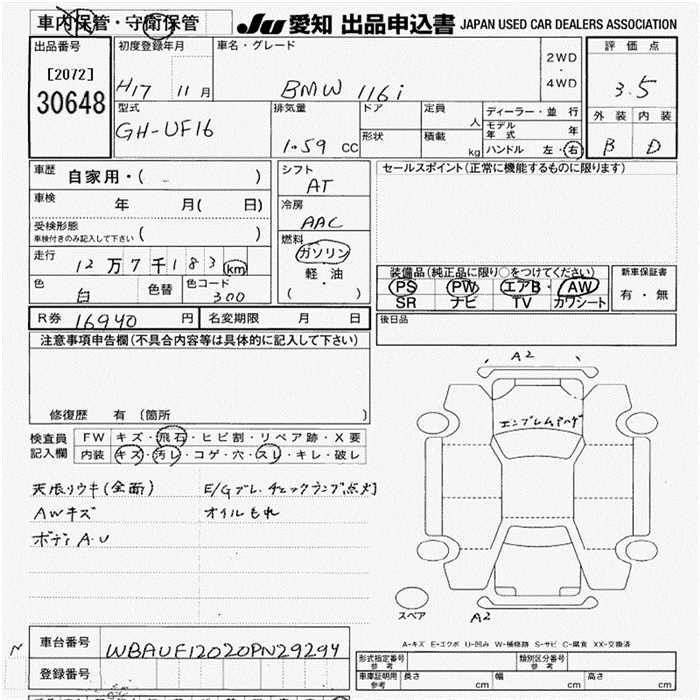 車内保管・守衛保管
JU 愛知 出品申込書 JAPAN USED CAR DEALERS ASSOCIATION
出品番号
[2072]
30648
初度登録年月
H17 11月
車名・グレード
BMW 116i
2WD
・
4WD
評価点
3.5
外装 内装
B D
型式
GH-UF16
排気量
1.59 CC
ドア
形状
定員
人
積載
kg
ディーラー・並行
モデル年式 年
ハンドル 左・右
車歴
自家用・( )
車検
年 月( 日)
受検形態
車検付きのみ記入して下さい ( )
走行
12万7千183km
色
白
色替
色コード
300
シフト
AT
冷房
AAC
燃料
ガソリン
・
軽・油
・
( )
セールスポイント(正常に機能するものに限ります)
装備品(純正品に限り○をつけてください)
PS PW エアB・ AW
SR ナビ TV カワシート
新車保証書
有・無
R券 16940 円
名変期限 月 日
後日品
注意事項申告欄(不具合内容等は具体的に記入して下さい)
修復歴 有 (箇所 )
検査員
記入欄
FW キズ・飛石・ヒビ割・リペア跡・X要
内装 キズ・汚レ・コゲ・穴・スレ・キレ・破レ
天張リウキ(全面)
AWキズ
ボディA・U
E/Gブレ、チェックランプ点灯
オイルもれ
A2
エンブレムハゲ
スペア
A2
A-キズ E-エクボ U-凹み W-補修跡 S-サビ C-腐食 XX-交換済
N
車台番号
WBAUF12020PN29294
登録番号
形式指定番号
参考
類別区分番号
参考
車庫証明用
参考
長さ cm
幅 cm
高さ cm